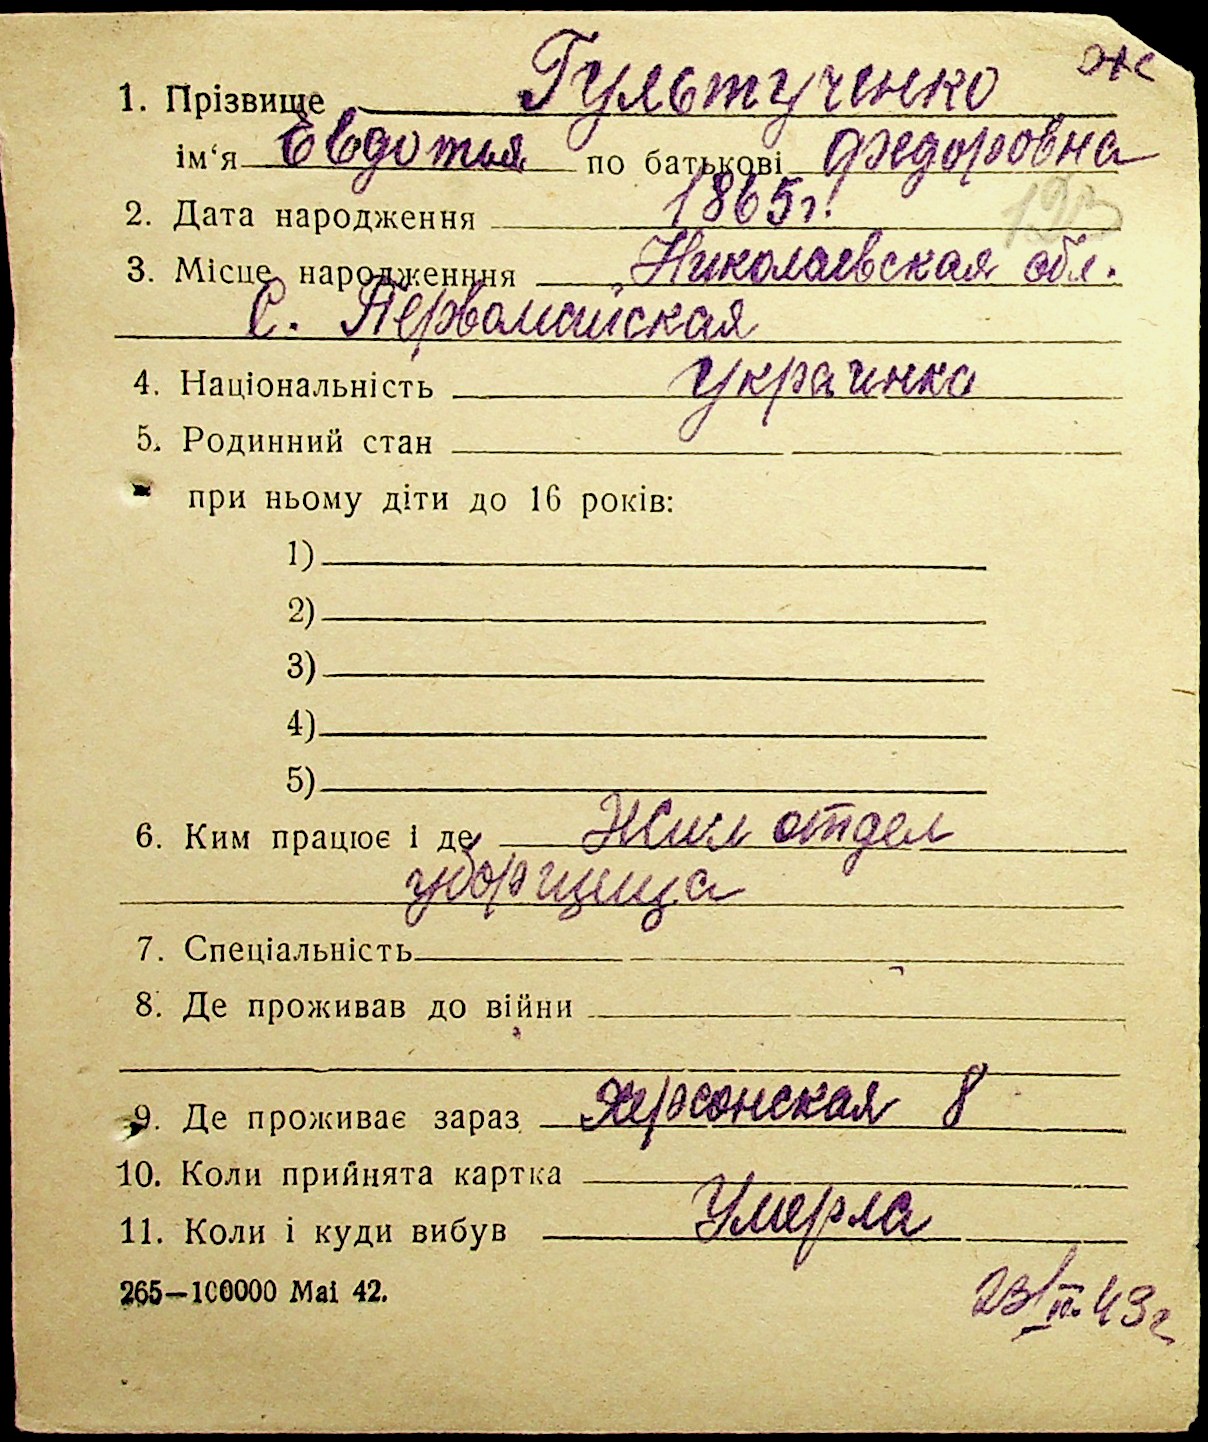 ж
1. Прізвище Гультученко
ім‘я Евдотья по батькові Федоровна
2. Дата народження 1865 г.
123
3. Місце народженння Николаевская обл.
С. Первомайская
4. Національність украинка
5. Родинний стан
при ньому діти до 16 років:
1)
2)
3)
4)
5)
6. Ким працює і де Жил отдел
уборщица
7. Спеціальність
8. Де проживав до війни
9. Де проживає зараз Херсонская 8
10. Коли прийнята картка
11. Коли і куди вибув Умерла
265—100000 Mai 42.
23/II.43г